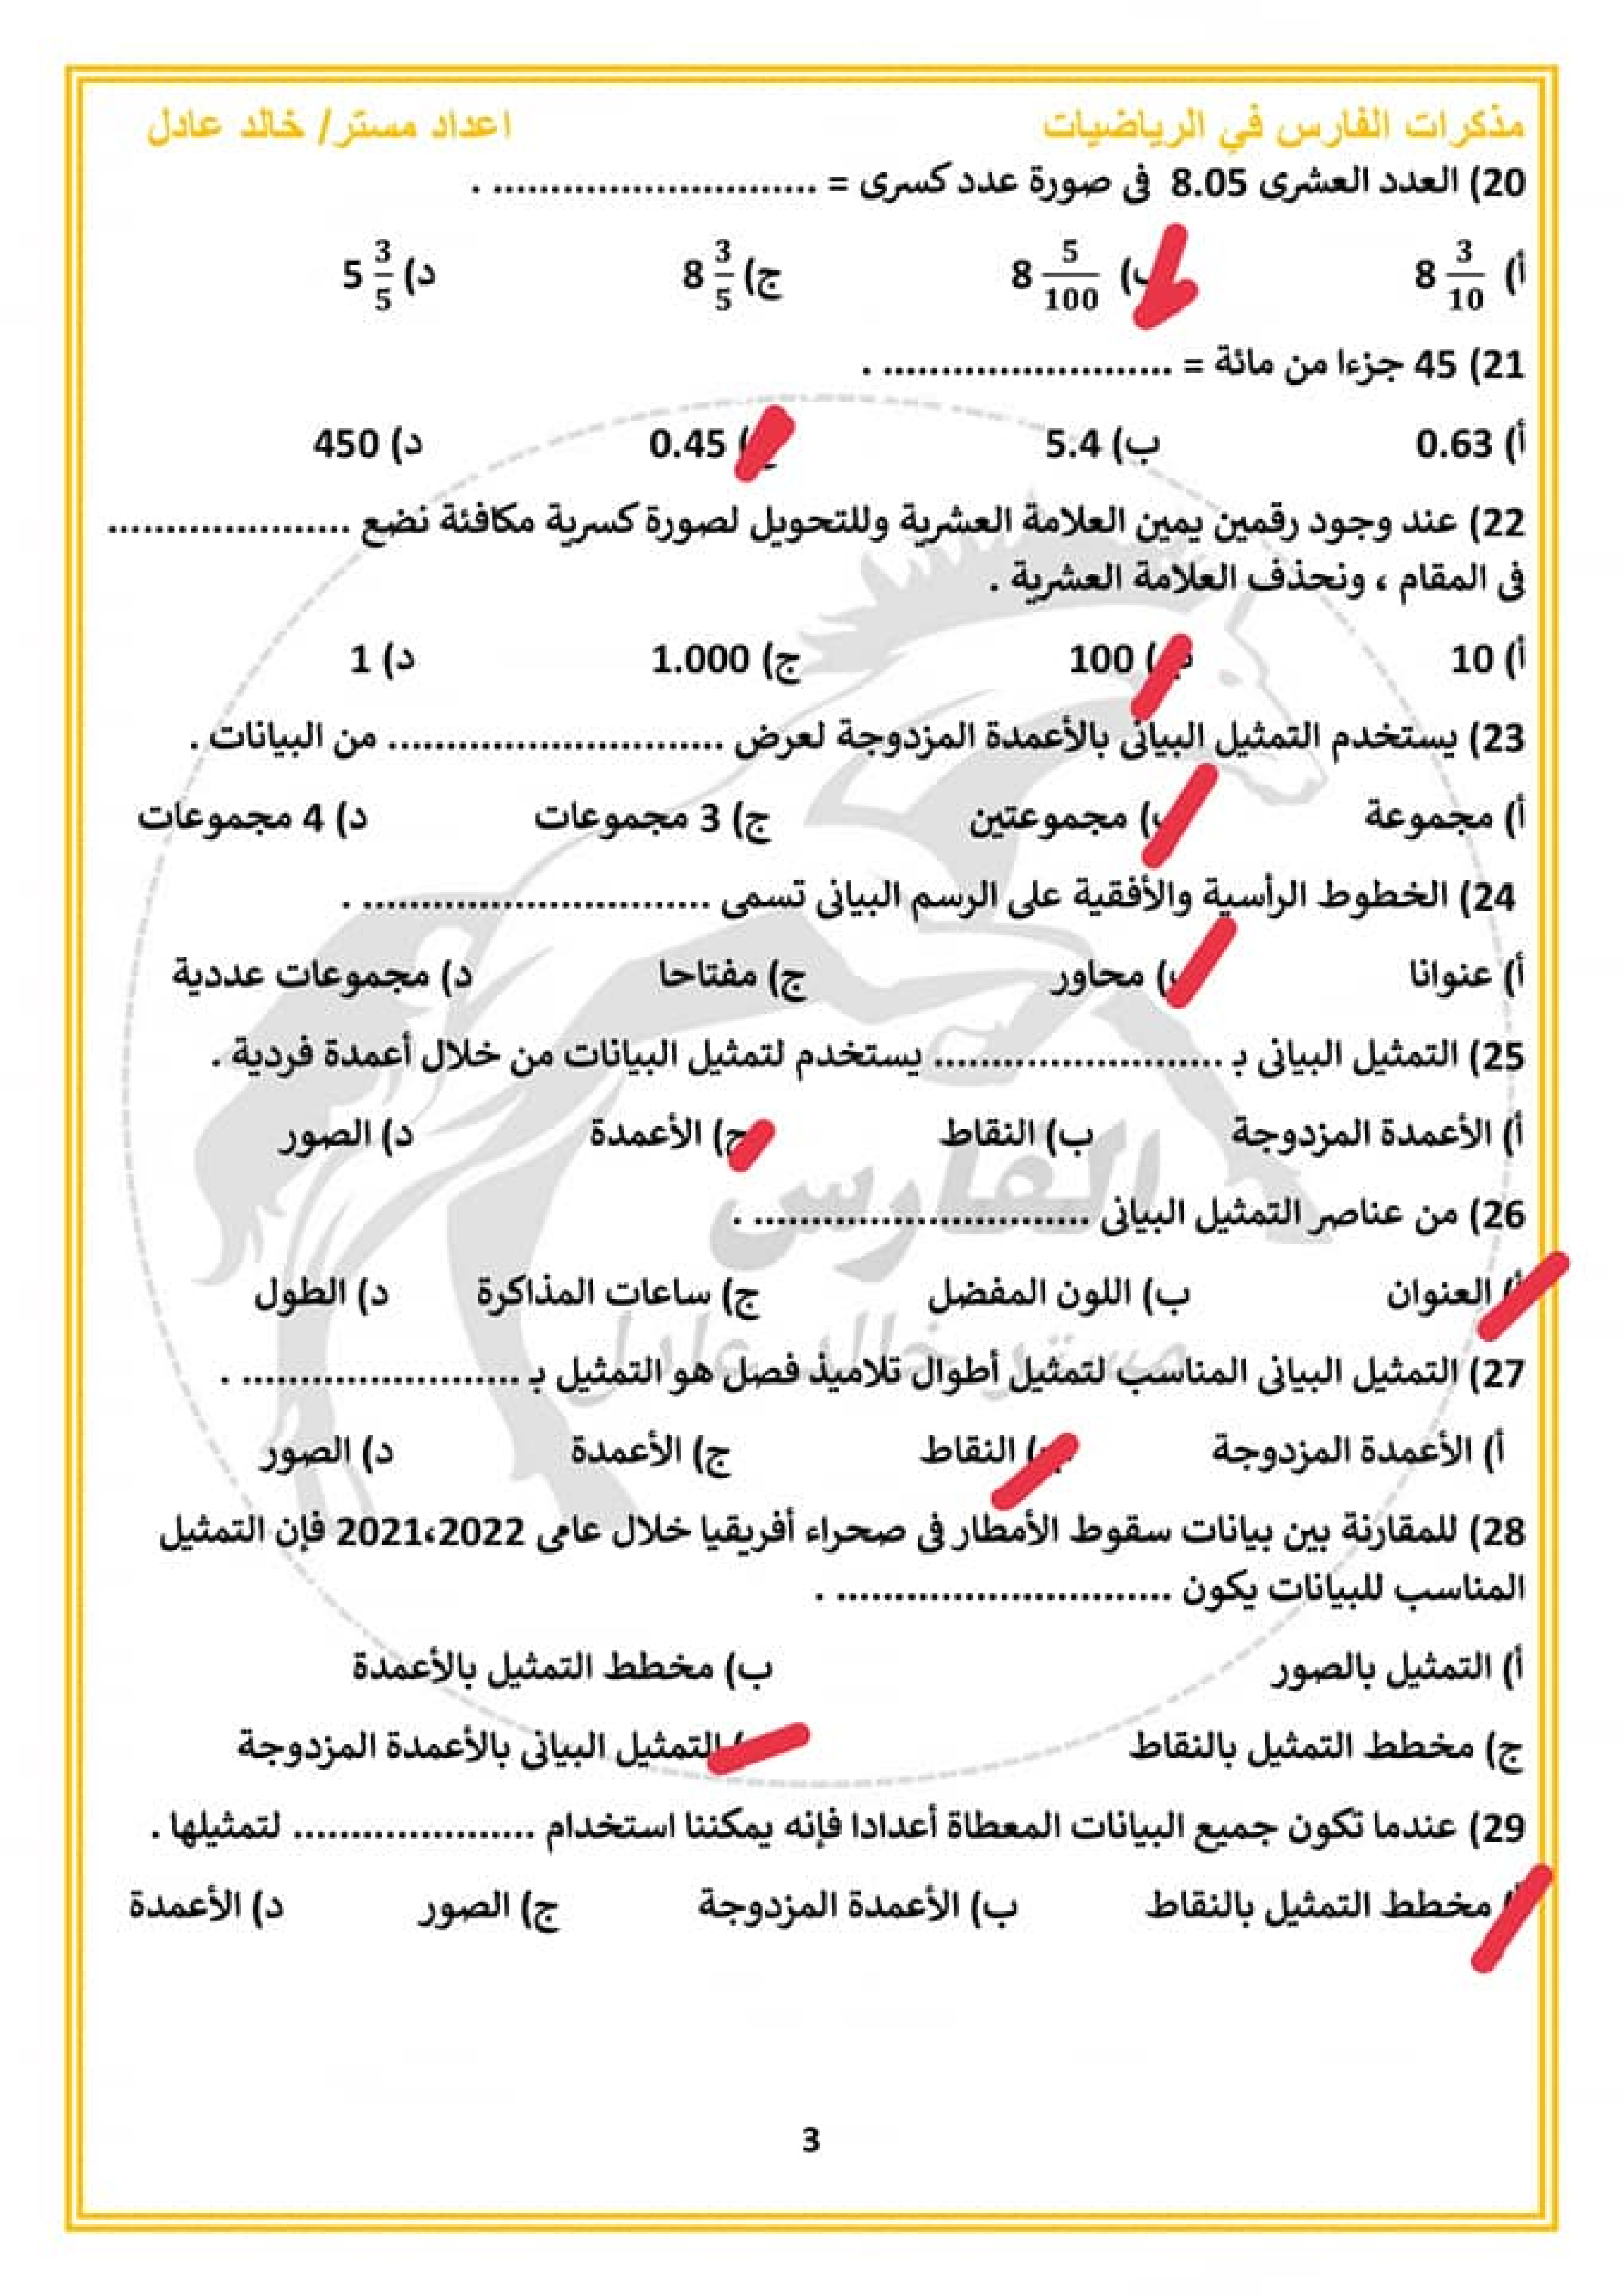 مذكرات الفارس في الرياضيات اعداد مستر/ خالد عادل
20) العدد العشرى 8.05 فى صورة عدد كسرى = ............................ .
أ) 8 3/10 ب) 8 5/100 ج) 8 3/5 د) 5 3/5
21) 45 جزءا من مائة = ......................... .
أ) 0.63 ب) 5.4 ج) 0.45 د) 450
22) عند وجود رقمين يمين العلامة العشرية وللتحويل لصورة كسرية مكافئة نضع .....................
فى المقام ، ونحذف العلامة العشرية .
أ) 10 ب) 100 ج) 1.000 د) 1
23) يستخدم التمثيل البيانى بالأعمدة المزدوجة لعرض ............................. من البيانات .
أ) مجموعة ب) مجموعتين ج) 3 مجموعات د) 4 مجموعات
24) الخطوط الرأسية والأفقية على الرسم البيانى تسمى .............................. .
أ) عنوانا ب) محاور ج) مفتاحا د) مجموعات عددية
25) التمثيل البيانى بـ ......................... يستخدم لتمثيل البيانات من خلال أعمدة فردية .
أ) الأعمدة المزدوجة ب) النقاط ج) الأعمدة د) الصور
26) من عناصر التمثيل البيانى ............................. .
أ) العنوان ب) اللون المفضل ج) ساعات المذاكرة د) الطول
27) التمثيل البيانى المناسب لتمثيل أطوال تلاميذ فصل هو التمثيل بـ ........................ .
أ) الأعمدة المزدوجة ب) النقاط ج) الأعمدة د) الصور
28) للمقارنة بين بيانات سقوط الأمطار فى صحراء أفريقيا خلال عامى 2021،2022 فإن التمثيل
المناسب للبيانات يكون ............................. .
أ) التمثيل بالصور ب) مخطط التمثيل بالأعمدة
ج) مخطط التمثيل بالنقاط د) التمثيل البيانى بالأعمدة المزدوجة
29) عندما تكون جميع البيانات المعطاة أعدادا فإنه يمكننا استخدام ..................... لتمثيلها .
أ) مخطط التمثيل بالنقاط ب) الأعمدة المزدوجة ج) الصور د) الأعمدة
الفارس
مستر خالد عادل
3